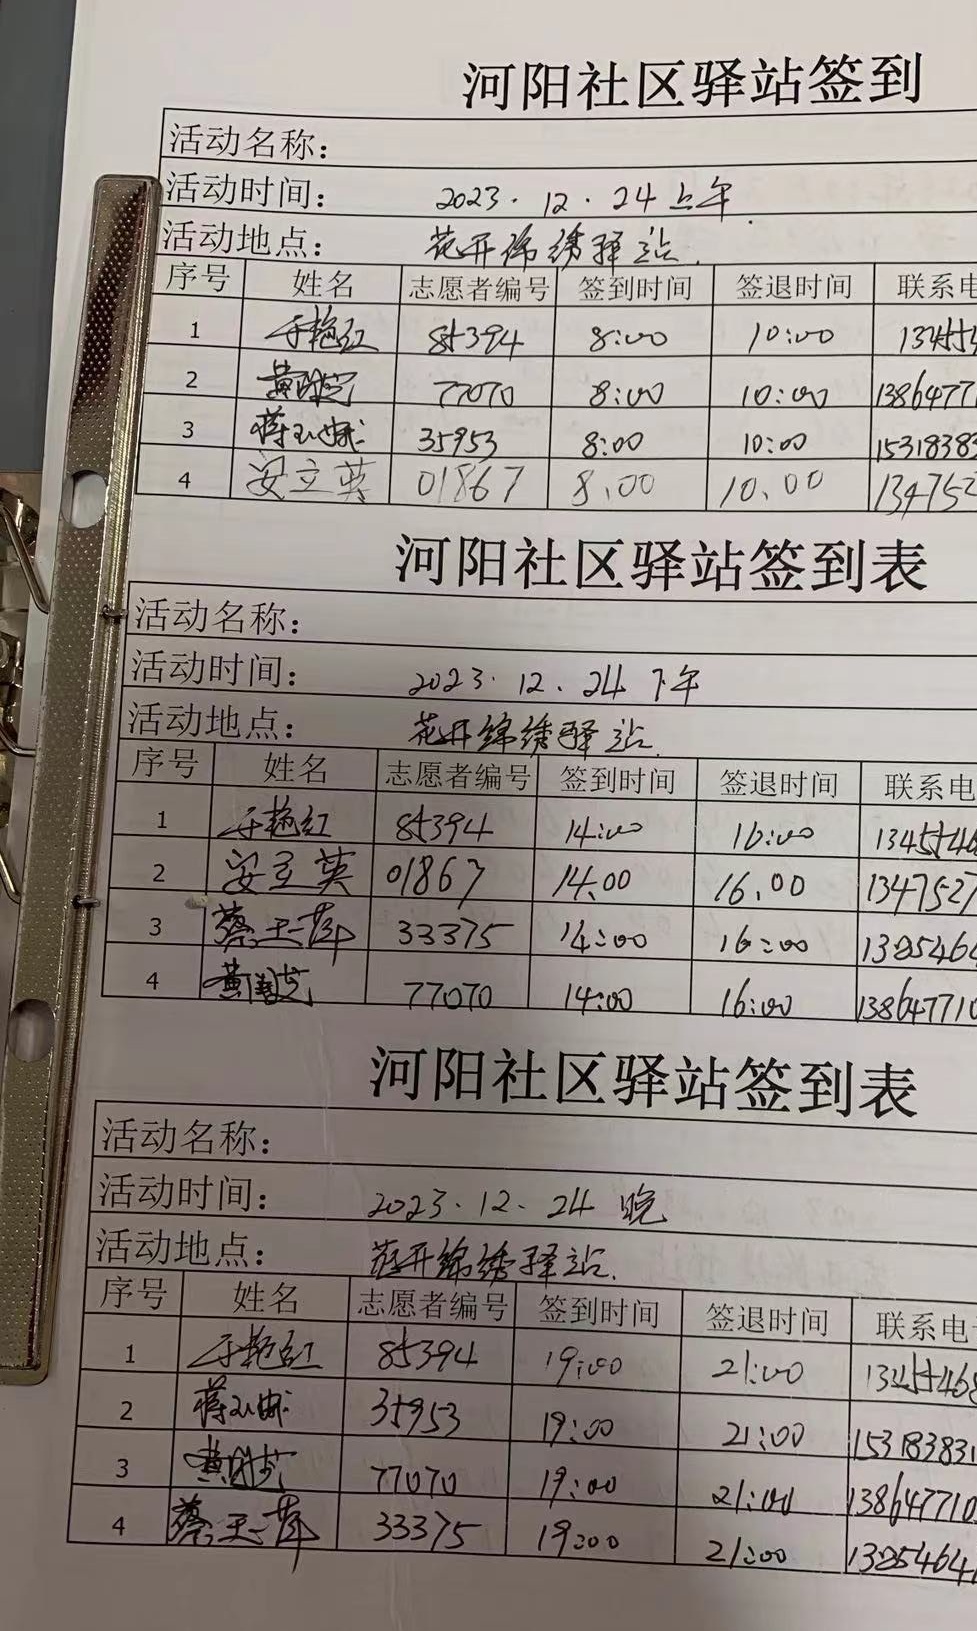 河阳社区驿站签到
活动名称：
活动时间： 2023.12.24上午
活动地点： 花开锦绣驿站.
序号 姓名 志愿者编号 签到时间 签退时间 联系电
1 于艳红 85394 8:00 10:00 134554
2 77070 8:00 10:00 1386477
3 35953 8:00 10:00 15318383
4 安立英 01867 8.00 10.00 1347527
河阳社区驿站签到表
活动名称：
活动时间： 2023.12.24下午
活动地点： 花开锦绣驿站.
序号 姓名 志愿者编号 签到时间 签退时间 联系电
1 于艳红 85394 14:00 16:00 1345546
2 安立英 01867 14.00 16.00 1347527
3 蔡玉萍 33375 14:00 16:00 1325464
4 77070 14:00 16:00 138647710
河阳社区驿站签到表
活动名称：
活动时间： 2023.12.24 晚
活动地点： 花开锦绣驿站.
序号 姓名 志愿者编号 签到时间 签退时间 联系电
1 于艳红 85394 19:00 21:00 13455468
2 35953 19:00 21:00 153183831
3 77070 19:00 21:00 138647710
4 蔡玉萍 33375 19:00 21:00 13254641